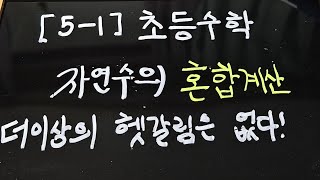 [5-1] 초등수학
자연수의 혼합계산
더이상의 헷갈림은 없다!